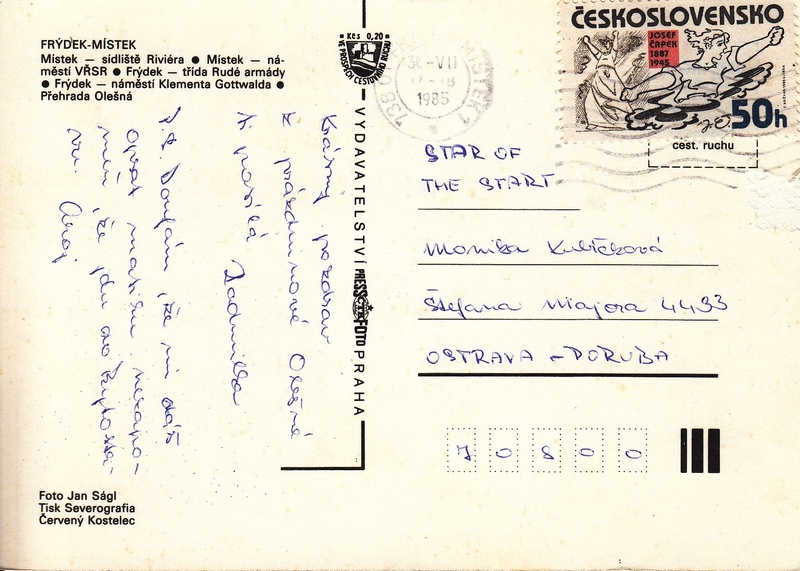 FRÝDEK-MÍSTEK
Místek — sídliště Riviéra ● Místek — ná-
městí VŘSR ● Frýdek — třída Rudé armády
● Frýdek — náměstí Klementa Gottwalda ●
Přehrada Olešná
Krásný pozdrav
z prázdninové Olešné
Ti posílá Radmilka
P.S. Doufám, že mi dáš
opsat matiku, nezapo-
meň, že jdu do
Ahoj
Foto Jan Ságl
Tisk Severografia
Červený Kostelec
Kčs 0,20
VE PROSPĚCH CESTOVNÍHO RUCHU
VYDAVATELSTVÍ PRESSFOTO PRAHA
738
MÍSTEK 1
30-VII
1985
ČESKOSLOVENSKO
JOSEF
ČAPEK
1887
1945
50h
cest. ruchu
STAR OF
THE START
Monika Kubíčková
Štefana Majora 4433
OSTRAVA – PORUBA
70800